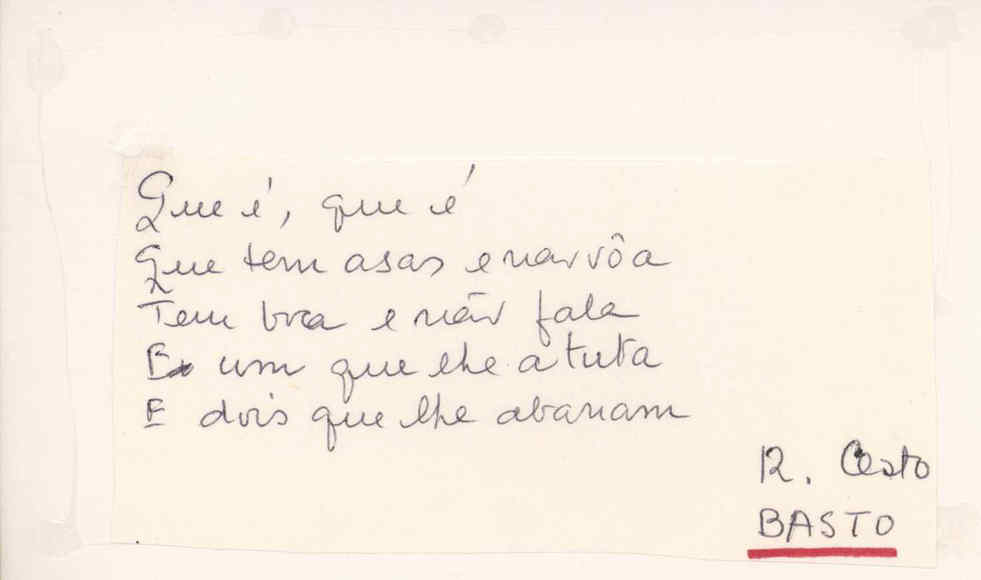 Que é, que é
Que tem asas e não vôa
Tem boca e não fala
um que lhe atuta
E dois que lhe abanam
R. Cesto
BASTO